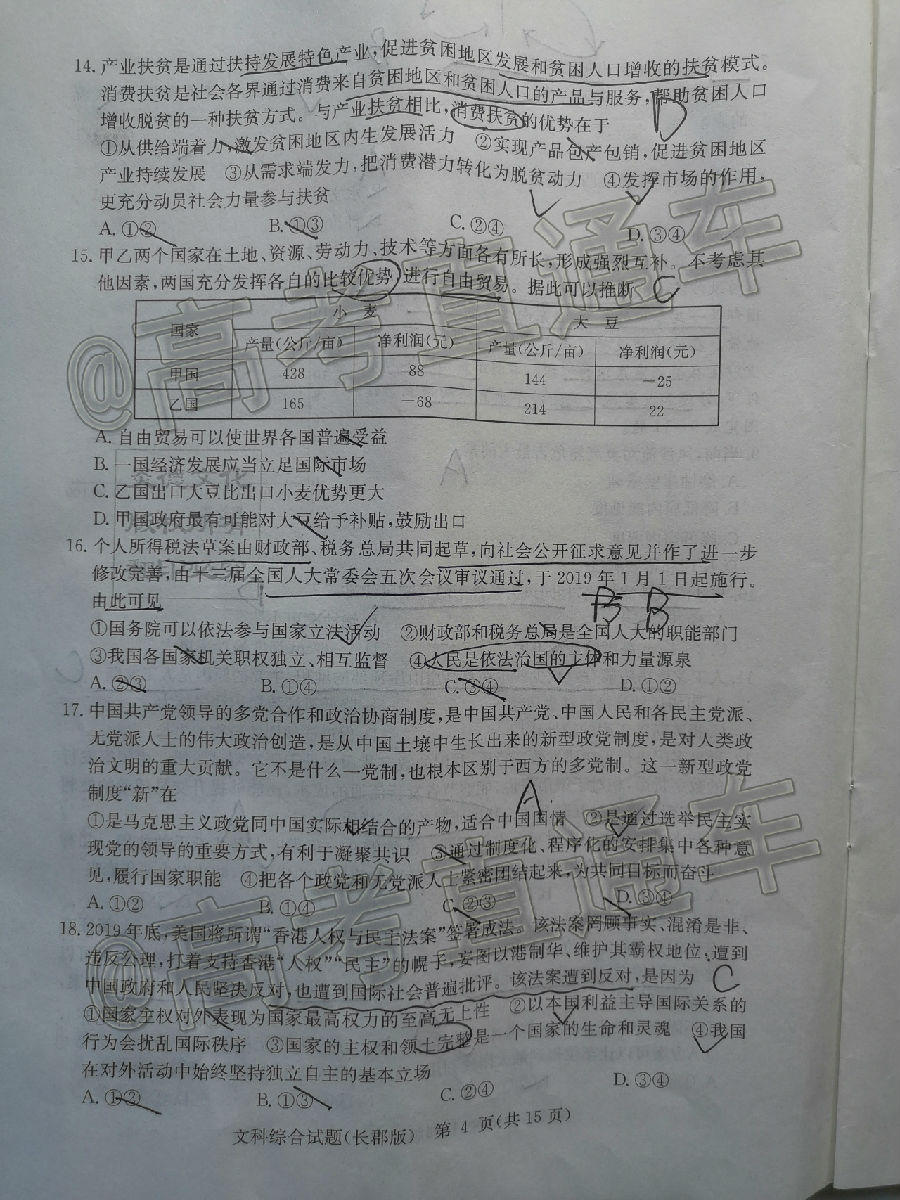 14. 产业扶贫是通过扶持发展特色产业,促进贫困地区发展和贫困人口增收的扶贫模式。
消费扶贫是社会各界通过消费来自贫困地区和贫困人口的产品与服务,帮助贫困人口
增收脱贫的一种扶贫方式。与产业扶贫相比,消费扶贫的优势在于
D
①从供给端着力,激发贫困地区内生发展活力 ②实现产品包产包销,促进贫困地区
产业持续发展 ③从需求端发力,把消费潜力转化为脱贫动力 ④发挥市场的作用,
更充分动员社会力量参与扶贫
A. ①② B. ①③ C. ②④ D. ③④
15. 甲乙两个国家在土地、资源、劳动力、技术等方面各有所长,形成强烈互补。不考虑其
他因素,两国充分发挥各自的比较优势,进行自由贸易。据此可以推断 C
国家 小 麦 大 豆
产量(公斤/亩) 净利润(元) 产量(公斤/亩) 净利润(元)
甲国 428 88 144 -25
乙国 165 -68 214 22
A. 自由贸易可以使世界各国普遍受益
B. 一国经济发展应当立足国际市场
A
C. 乙国出口大豆比出口小麦优势更大
D. 甲国政府最有可能对大豆给予补贴,鼓励出口
16. 个人所得税法草案由财政部、税务总局共同起草,向社会公开征求意见并作了进一步
修改完善,由十三届全国人大常委会五次会议审议通过,于 2019 年 1 月 1 日起施行。
由此可见
B B
①国务院可以依法参与国家立法活动 ②财政部和税务总局是全国人大的职能部门
③我国各国家机关职权独立、相互监督 ④人民是依法治国的主体和力量源泉
A. ②③ B. ①④ C. ③④ D. ①②
17. 中国共产党领导的多党合作和政治协商制度,是中国共产党、中国人民和各民主党派、
无党派人士的伟大政治创造,是从中国土壤中生长出来的新型政党制度,是对人类政
治文明的重大贡献。它不是什么一党制,也根本区别于西方的多党制。这一新型政党
制度“新”在
A
①是马克思主义政党同中国实际相结合的产物,适合中国国情 ②是通过选举民主实
现党的领导的重要方式,有利于凝聚共识 ③通过制度化、程序化的安排集中各种意
见,履行国家职能 ④把各个政党和无党派人士紧密团结起来,为共同目标而奋斗
A. ①② B. ①④ C. ②③ D. ③④
18. 2019 年底,美国将所谓“香港人权与民主法案”签署成法。该法案罔顾事实、混淆是非、
违反公理,打着支持香港“人权”“民主”的幌子,妄图以港制华、维护其霸权地位,遭到
中国政府和人民坚决反对,也遭到国际社会普遍批评。该法案遭到反对,是因为 C
①国家主权对外表现为国家最高权力的至高无上性 ②以本国利益主导国际关系的
行为会扰乱国际秩序 ③国家的主权和领土完整是一个国家的生命和灵魂 ④我国
在对外活动中始终坚持独立自主的基本立场
A. ①② B. ①③ C. ②④ D. ③④
文科综合试题(长郡版) 第 4 页(共 15 页)
@高考直通车
@高考直通车